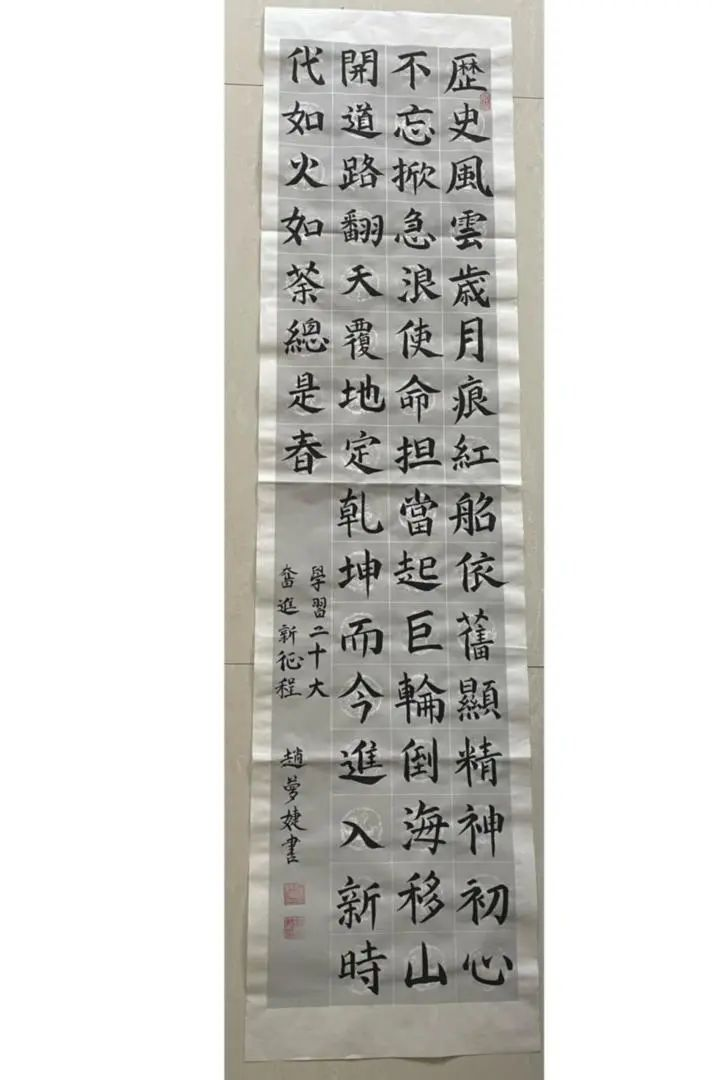 歷史風雲歲月痕紅船依舊顯精神初心
不忘掀急浪使命担當起巨輪倒海移山
開道路翻天覆地定乾坤而今進入新時
代如火如荼總是春
學習二十大
奮進新征程
趙夢婕書